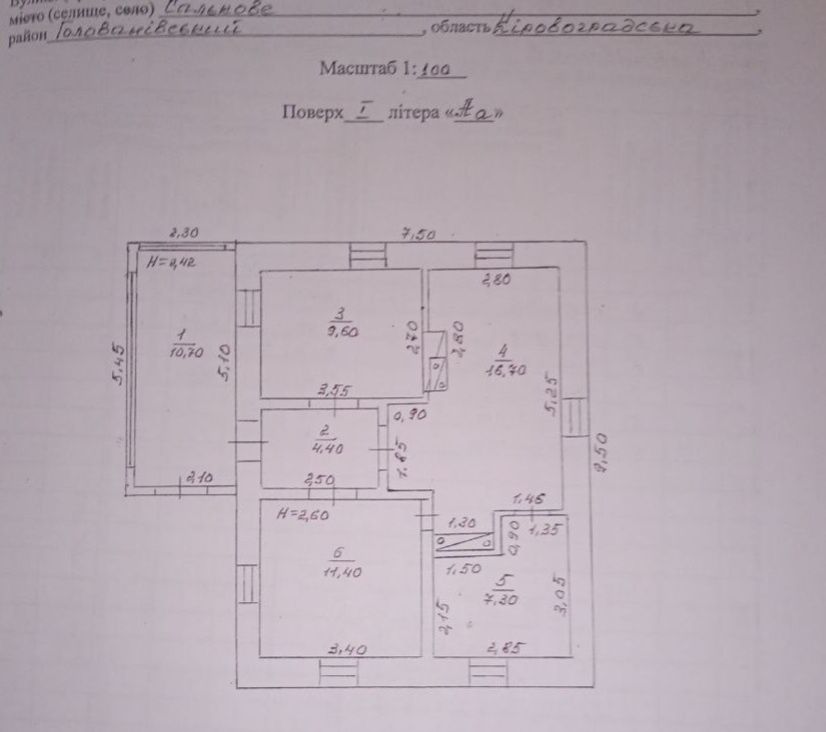 місто (селище, село) Сальнове,
район Голованівський, область Кіровоградська,
Масштаб 1:100
Поверх I літера «Аа»
2,30
7,50
H=2,42
2,80
1
10,70
5,45
5,10
3
9,60
2,70
2,80
4
16,70
3,55
5,25
0,90
2
4,40
1,85
9,50
2,10
2,50
1,46
H=2,60
1,30
0,90
1,35
6
11,40
1,50
5
7,30
3,05
2,15
3,40
2,85